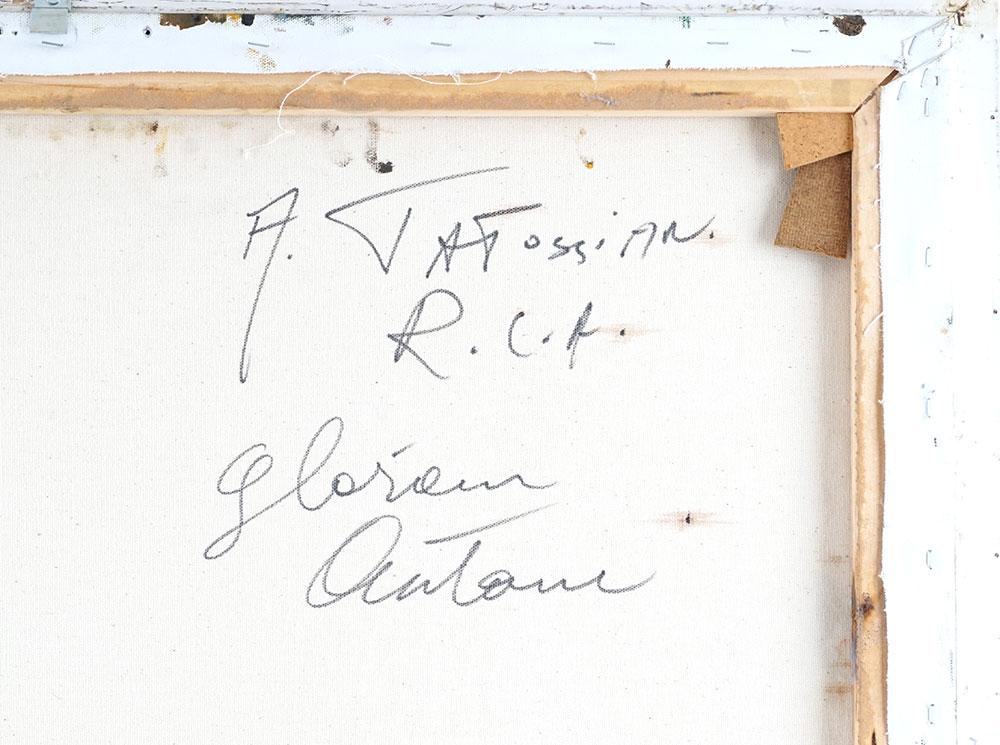 A. TATOSSiAN.
R.C.A.
glorious
Autumn